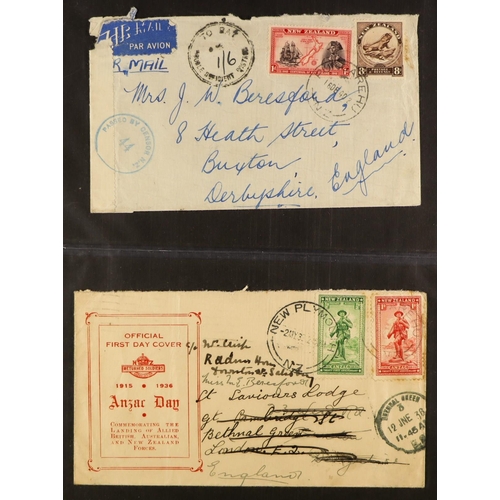 AIR MAIL
PAR AVION
AIR MAIL
TO PAY
1/6
NEW ZEALAND
NEW ZEALAND
8D
PASSED BY CENSOR N.Z.
44
Mrs. J. W. Beresford,
8 Heath Street,
Buxton,
Derbyshire, England
OFFICIAL
FIRST DAY COVER
RETURNED SOLDIERS
1915 1936
Anzac Day
COMMEMORATING THE
LANDING OF ALLIED
BRITISH, AUSTRALIAN,
AND NEW ZEALAND
FORCES
NEW PLYMO
NEW ZEALAND
NEW ZEALAND
c/o
Beresford
St Saviours Lodge
Gt Cambridge St
Bethnal Green
London E.
England
BETHNAL GREEN
12 JNE 36
11.45 AM